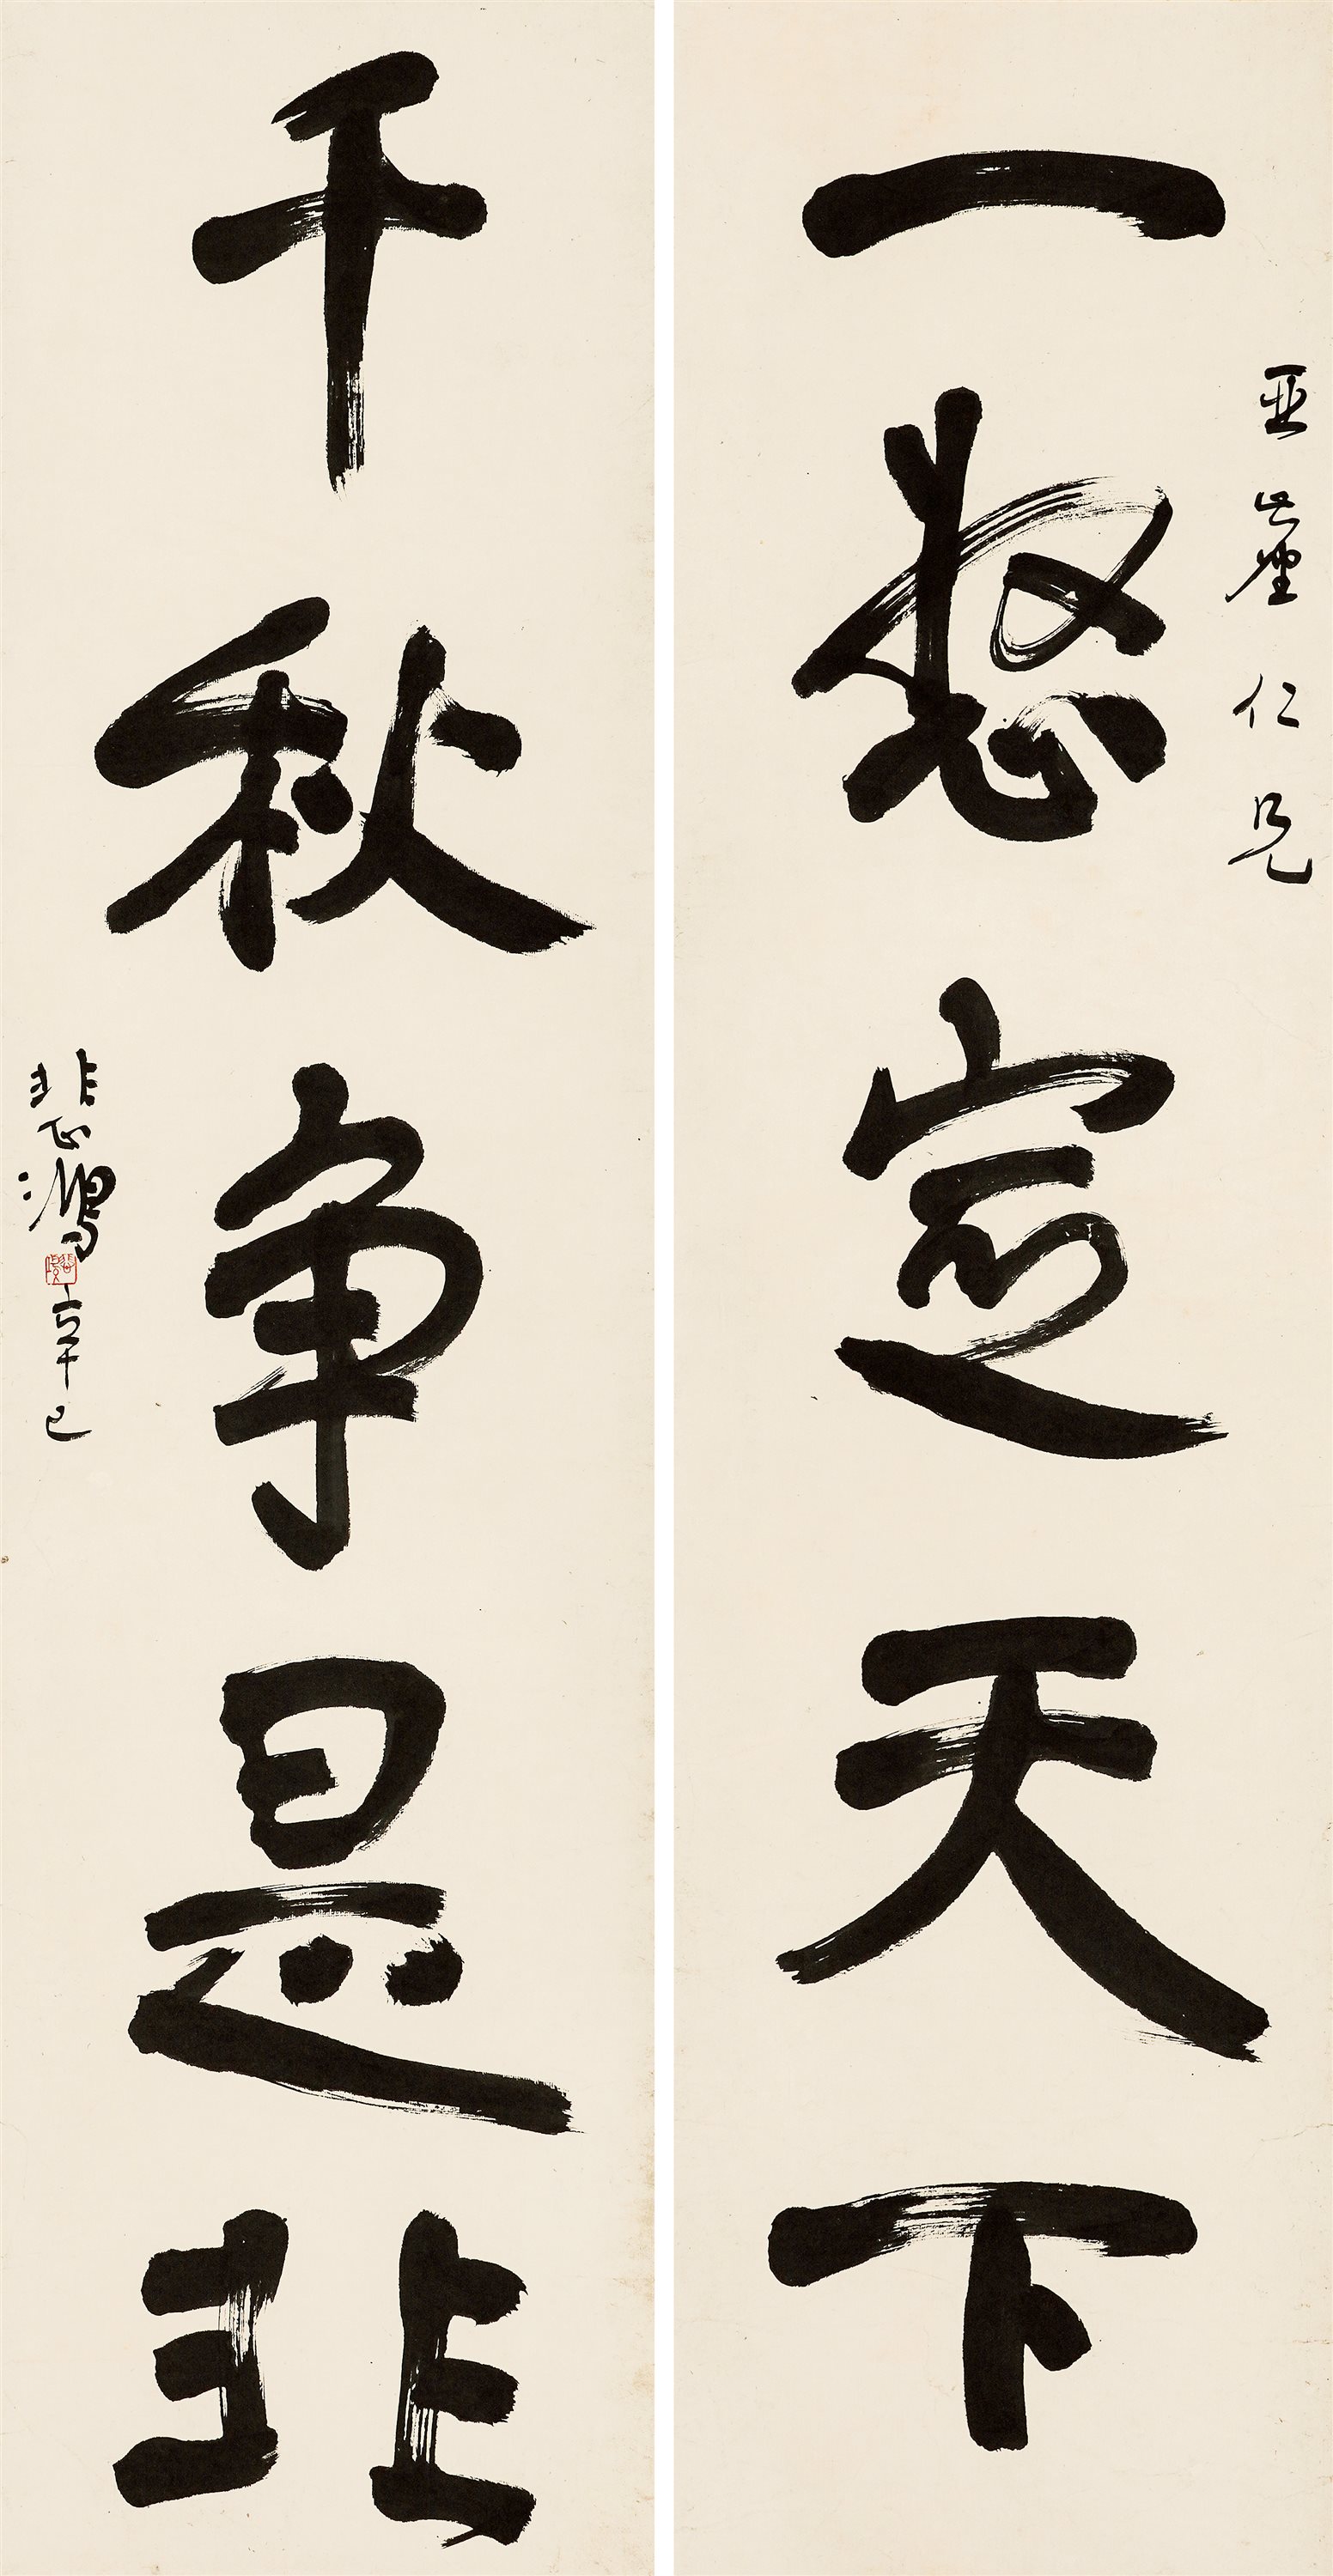 亚塵仁兄
一怒定天下
千秋争是非
悲鴻 辛巳